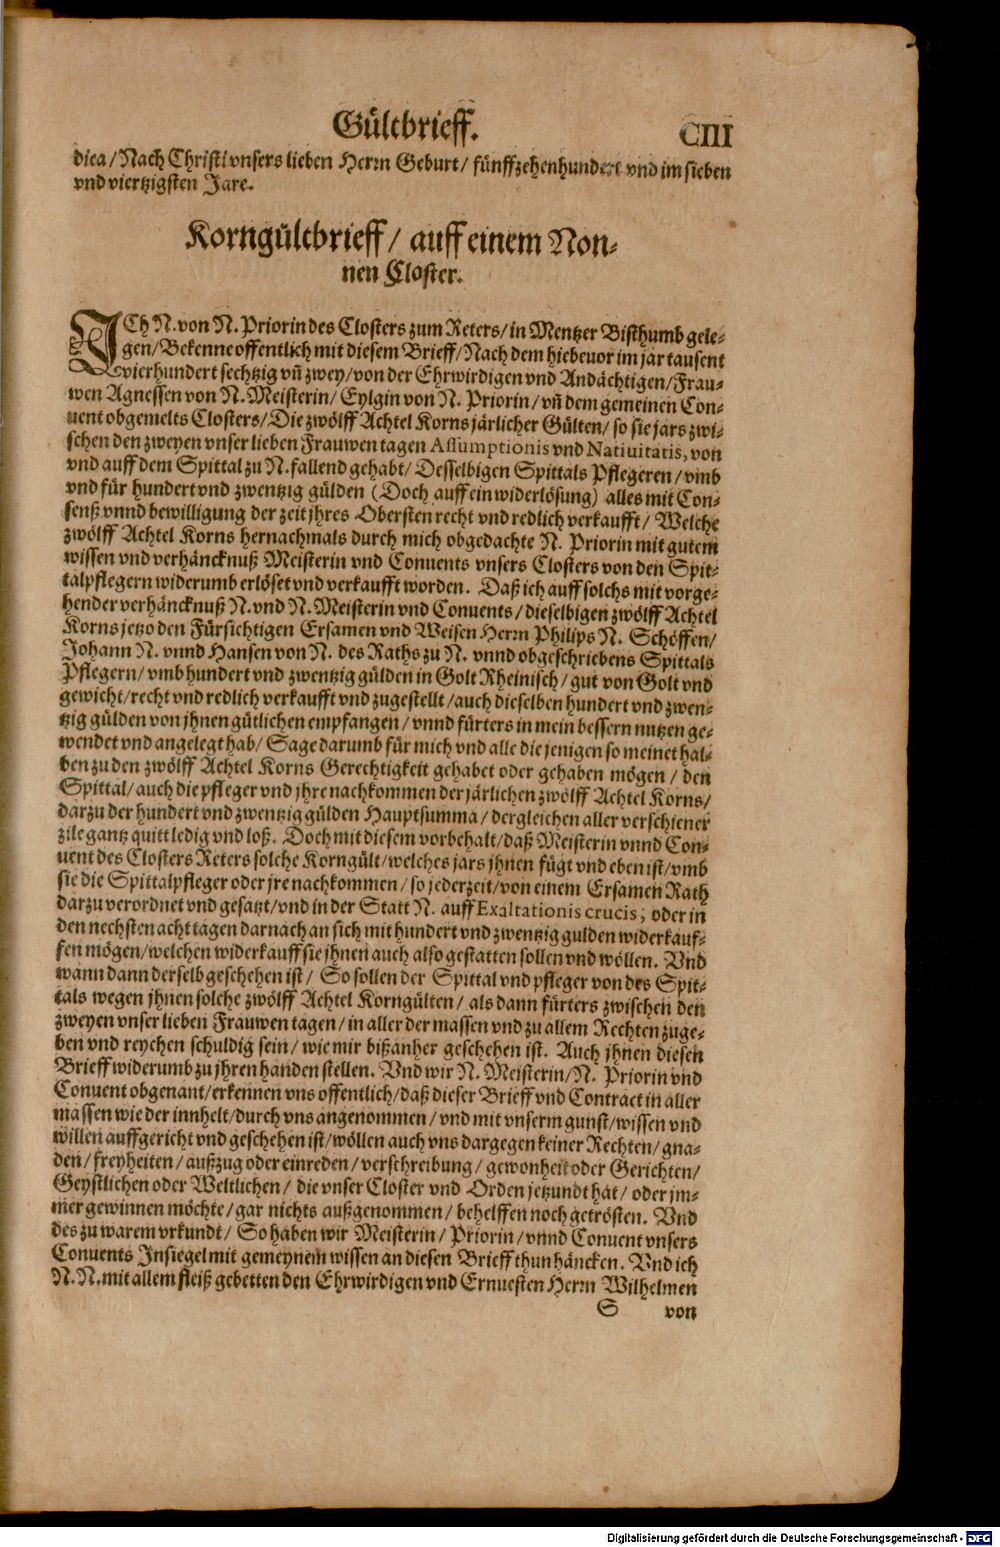 Gültbrieff.
CIII
dica / Nach Christi vnsers lieben Herrn Geburt / fünffzehenhundert vnd im sieben
vnd viertzigsten Jare.
Korngültbrieff / auff einem Non-
nen Closter.
ICh N. von N. Priorin des Closters zum Reters / in Mentzer Bisthumb gele-
gen / Bekenne offentlich mit diesem Brieff / Nach dem hiebeuor im jar tausent
vierhundert sechtzig vñ zwey / von der Ehrwirdigen vnd Andächtigen / Frau-
wen Agnessen von N. Meisterin / Eylgin von N. Priorin / vñ dem gemeinen Con-
uent obgemelts Closters / Die zwölff Achtel Korns järlicher Gülten / so sie jars zwi-
schen den zweyen vnser lieben Frauwen tagen Assumptionis vnd Natiuitatis, von
vnd auff dem Spittal zu N. fallend gehabt / Desselbigen Spittals Pflegeren / vmb
vnd für hundert vnd zwentzig gülden (Doch auff ein widerlösung) alles mit Con-
senß vnnd bewilligung der zeit jhres Obersten recht vnd redlich verkaufft / Welche
zwölff Achtel Korns hernachmals durch mich obgedachte N. Priorin mit gutem
wissen vnd verhäncknuß Meisterin vnd Conuents vnsers Closters von den Spit-
talpflegern widerumb erlöset vnd verkaufft worden. Daß ich auff solchs mit vorge-
hender verhäncknuß N. vnd N. Meisterin vnd Conuents / dieselbigen zwölff Achtel
Korns jetzo den Fürsichtigen Ersamen vnd Weisen Herrn Philips N. Schöffen /
Johann N. vnnd Hansen von N. des Raths zu N. vnnd obgeschriebens Spittals
Pflegern / vmb hundert vnd zwentzig gülden in Golt Rheinisch / gut von Golt vnd
gewicht / recht vnd redlich verkaufft vnd zugestellt / auch dieselben hundert vnd zwen-
tzig gülden von jhnen gütlichen empfangen / vnnd fürters in mein bessern nutzen ge-
wendet vnd angelegt hab / Sage darumb für mich vnd alle die jenigen so meinet hal-
ben zu den zwölff Achtel Korns Gerechtigkeit gehabet oder gehaben mögen / den
Spittal / auch die pfleger vnd jhre nachkommen der järlichen zwölff Achtel Korns /
darzu der hundert vnd zwentzig gülden Hauptsumma / dergleichen aller verschiener
zile gantz quitt ledig vnd loß. Doch mit diesem vorbehalt / daß Meisterin vnnd Con-
uent des Closters Reters solche Korngült / welches jars jhnen fügt vnd eben ist / vmb
sie die Spittalpfleger oder jre nachkommen / so jederzeit / von einem Ersamen Rath
darzu verordnet vnd gesatzt / vnd in der Statt N. auff Exaltationis crucis, oder in
den nechsten acht tagen darnach an sich mit hundert vnd zwentzig gulden widerkauf-
fen mögen / welchen widerkauff sie jhnen auch also gestatten sollen vnd wöllen. Vnd
wann dann derselb geschehen ist / So sollen der Spittal vnd pfleger von des Spit-
tals wegen jhnen solche zwölff Achtel Korngülten / als dann fürters zwischen den
zweyen vnser lieben Frauwen tagen / in aller der massen vnd zu allem Rechten zuge-
ben vnd reychen schuldig sein / wie mir bißanher geschehen ist. Auch jhnen diesen
Brieff widerumb zu jhren handen stellen. Vnd wir N. Meisterin / N. Priorin vnd
Conuent obgenant / erkennen vns offentlich / daß dieser Brieff vnd Contract in aller
massen wie der innhelt / durch vns angenommen / vnd mit vnserm gunst / wissen vnd
willen auffgericht vnd geschehen ist / wöllen auch vns dargegen keiner Rechten / gna-
den / freyheiten / außzug oder einreden / verschreibung / gewonheit oder Gerichten /
Geystlichen oder Weltlichen / die vnser Closter vnd Orden jetzundt hat / oder jm-
mer gewinnen möchte / gar nichts außgenommen / behelffen noch getrösten. Vnd
des zu warem vrkundt / So haben wir Meisterin / Priorin / vnnd Conuent vnsers
Conuents Insiegel mit gemeynem wissen an diesen Brieff thun häncken. Vnd ich
N. N. mit allem fleiß gebetten den Ehrwirdigen vnd Ernuesten Herrn Wilhelmen
S von
Digitalisierung gefördert durch die Deutsche Forschungsgemeinschaft - DFG